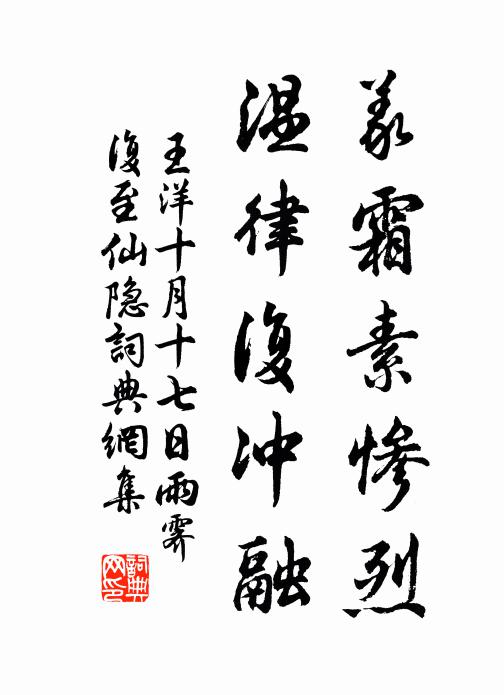 義霜素惨烈
温律復冲融
王洋十月十七日雨霁
復至仙隐詞典網集
詞典网印